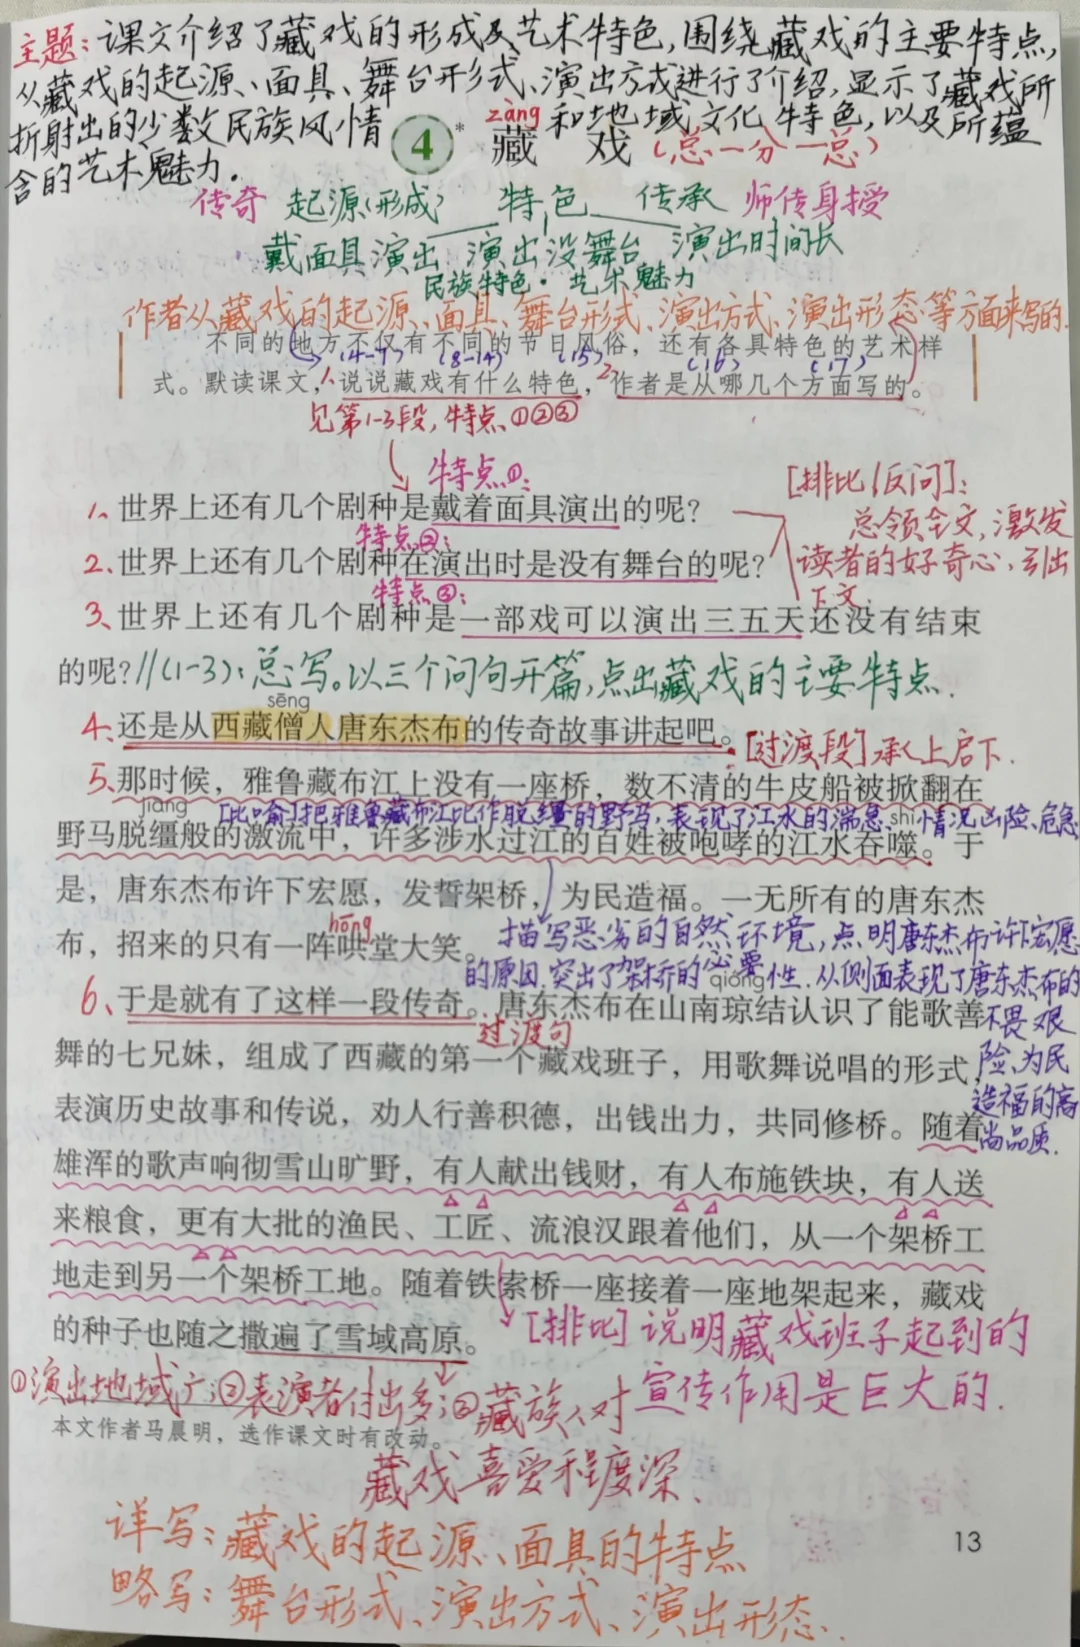 主题:课文介绍了藏戏的形成及艺术特色,围绕藏戏的主要特点,
从藏戏的起源、面具、舞台形式、演出方式进行了介绍,显示了藏戏所
折射出的少数民族风情和地域文化特色,以及所蕴
含的艺术魅力.
zàng
4* 藏 戏(总一分一总)
传奇 起源(形成) 特色 传承 师传身授
戴面具演出 演出没舞台 演出时间长
民族特色·艺术魅力
作者从藏戏的起源、面具、舞台形式、演出方式、演出形态等方面来写的.
不同的地方不仅有不同的节日风俗,还有各具特色的艺术样
(4-7) (8-14) (15) (16) (17)
式。默读课文,1、说说藏戏有什么特色,2、作者是从哪几个方面写的。
见第1-3段,特点①②③
特点①:
[排比/反问]:
1、世界上还有几个剧种是戴着面具演出的呢?
总领全文,激发
特点②:
2、世界上还有几个剧种在演出时是没有舞台的呢?
读者的好奇心,引出
下文.
特点③:
3、世界上还有几个剧种是一部戏可以演出三五天还没有结束
的呢?//(1-3):总写。以三个问句开篇,点出藏戏的主要特点.
sēng
4、还是从西藏僧人唐东杰布的传奇故事讲起吧。[过渡段]承上启下.
5、那时候,雅鲁藏布江上没有一座桥,数不清的牛皮船被掀翻在
jiāng [比喻]把雅鲁藏布江比作脱缰的野马,表现了江水的湍急、shì 情况凶险、危急
野马脱缰般的激流中,许多涉水过江的百姓被咆哮的江水吞噬。于
是,唐东杰布许下宏愿,发誓架桥,为民造福。一无所有的唐东杰
hōng
布,招来的只有一阵哄堂大笑。
描写恶劣的自然环境,点明唐东杰布许下宏愿
的原因.突出了架桥的必要性.从侧面表现了唐东杰布的
不畏艰
险、为民
造福的高
尚品质.
qióng
6、于是就有了这样一段传奇。唐东杰布在山南琼结认识了能歌善
过渡句
舞的七兄妹,组成了西藏的第一个藏戏班子,用歌舞说唱的形式,
表演历史故事和传说,劝人行善积德,出钱出力,共同修桥。随着
雄浑的歌声响彻雪山旷野,有人献出钱财,有人布施铁块,有人送
来粮食,更有大批的渔民、工匠、流浪汉跟着他们,从一个架桥工
地走到另一个架桥工地。随着铁索桥一座接着一座地架起来,藏戏
的种子也随之撒遍了雪域高原。
[排比]说明藏戏班子起到的
宣传作用是巨大的.
①演出地域广;②表演者付出多;③藏族人对
藏戏喜爱程度深.
本文作者马晨明,选作课文时有改动。
详写:藏戏的起源、面具的特点
略写:舞台形式、演出方式、演出形态.
13